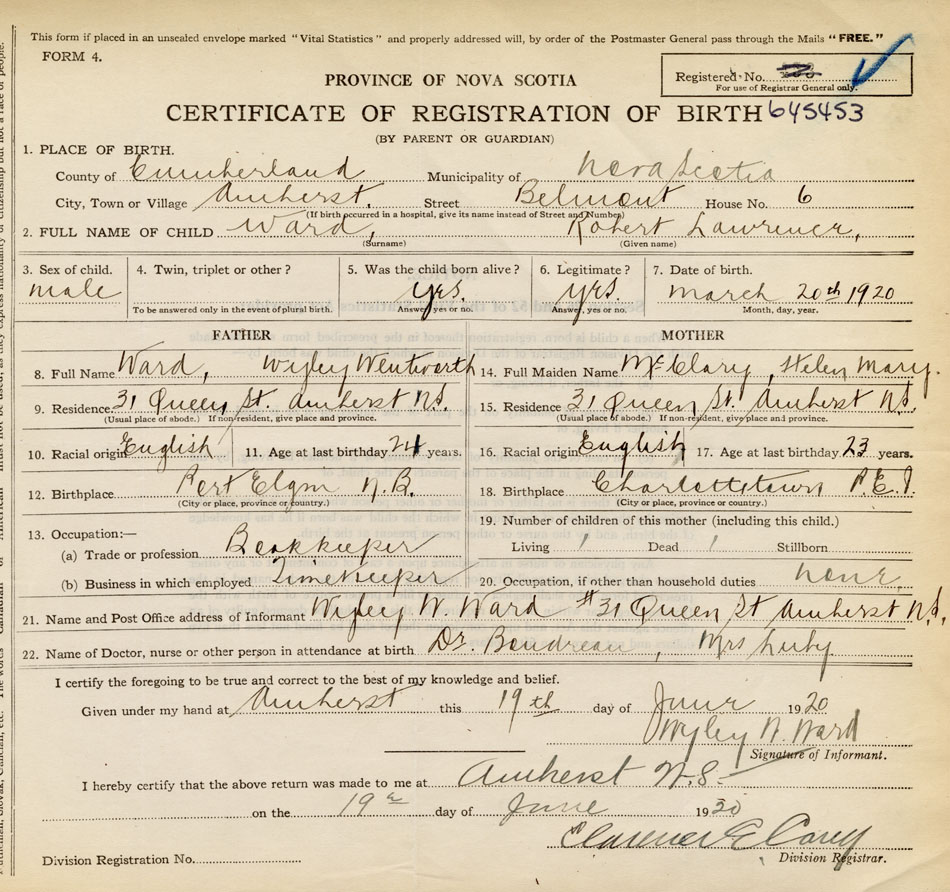 This form if placed in an unsealed envelope marked "Vital Statistics" and properly addressed will, by order of the Postmaster General pass through the Mails "FREE."
FORM 4.
Registered No.
For use of Registrar General only.
PROVINCE OF NOVA SCOTIA
CERTIFICATE OF REGISTRATION OF BIRTH 645453
(BY PARENT OR GUARDIAN)
1. PLACE OF BIRTH.
County of Cumberland Municipality of Nova Scotia
City, Town or Village Amherst. Street Belmont House No. 6
(If birth occurred in a hospital, give its name instead of Street and Number)
2. FULL NAME OF CHILD Ward, Robert Lawrence,
(Surname) (Given name)
3. Sex of child. 4. Twin, triplet or other? 5. Was the child born alive? 6. Legitimate? 7. Date of birth.
male yes. yes. March 20th 1920
To be answered only in the event of plural birth. Answer yes or no. Answer, yes or no. Month, day, year.
FATHER MOTHER
8. Full Name Ward, Wyley Wentworth 14. Full Maiden Name McClary, Helen Mary.
9. Residence. 31 Queen St Amherst N.S. 15. Residence 31 Queen St. Amherst N.S.
(Usual place of abode.) If non-resident, give place and province. (Usual place of abode.) If non-resident, give place and province.
10. Racial origin English 11. Age at last birthday 24 years. 16. Racial origin English 17. Age at last birthday 23 years.
12. Birthplace Port Elgin N.B. 18. Birthplace Charlottetown P.E.I.
(City or place, province or country.) (City or place, province or country.)
13. Occupation:— 19. Number of children of this mother (including this child.)
(a) Trade or profession Bookkeeper Living 1 Dead 1 Stillborn
(b) Business in which employed Timekeeper 20. Occupation, if other than household duties none
21. Name and Post Office address of Informant Wyley W. Ward #31 Queen St Amherst N.S.
22. Name of Doctor, nurse or other person in attendance at birth Dr. Boudreau, Mrs
I certify the foregoing to be true and correct to the best of my knowledge and belief.
Given under my hand at Amherst this 19th day of June 1920
Wyley W. Ward
Signature of Informant.
I hereby certify that the above return was made to me at Amherst N.S.
on the 19th day of June 1920
Clarence E
Division Registration No. Division Registrar.